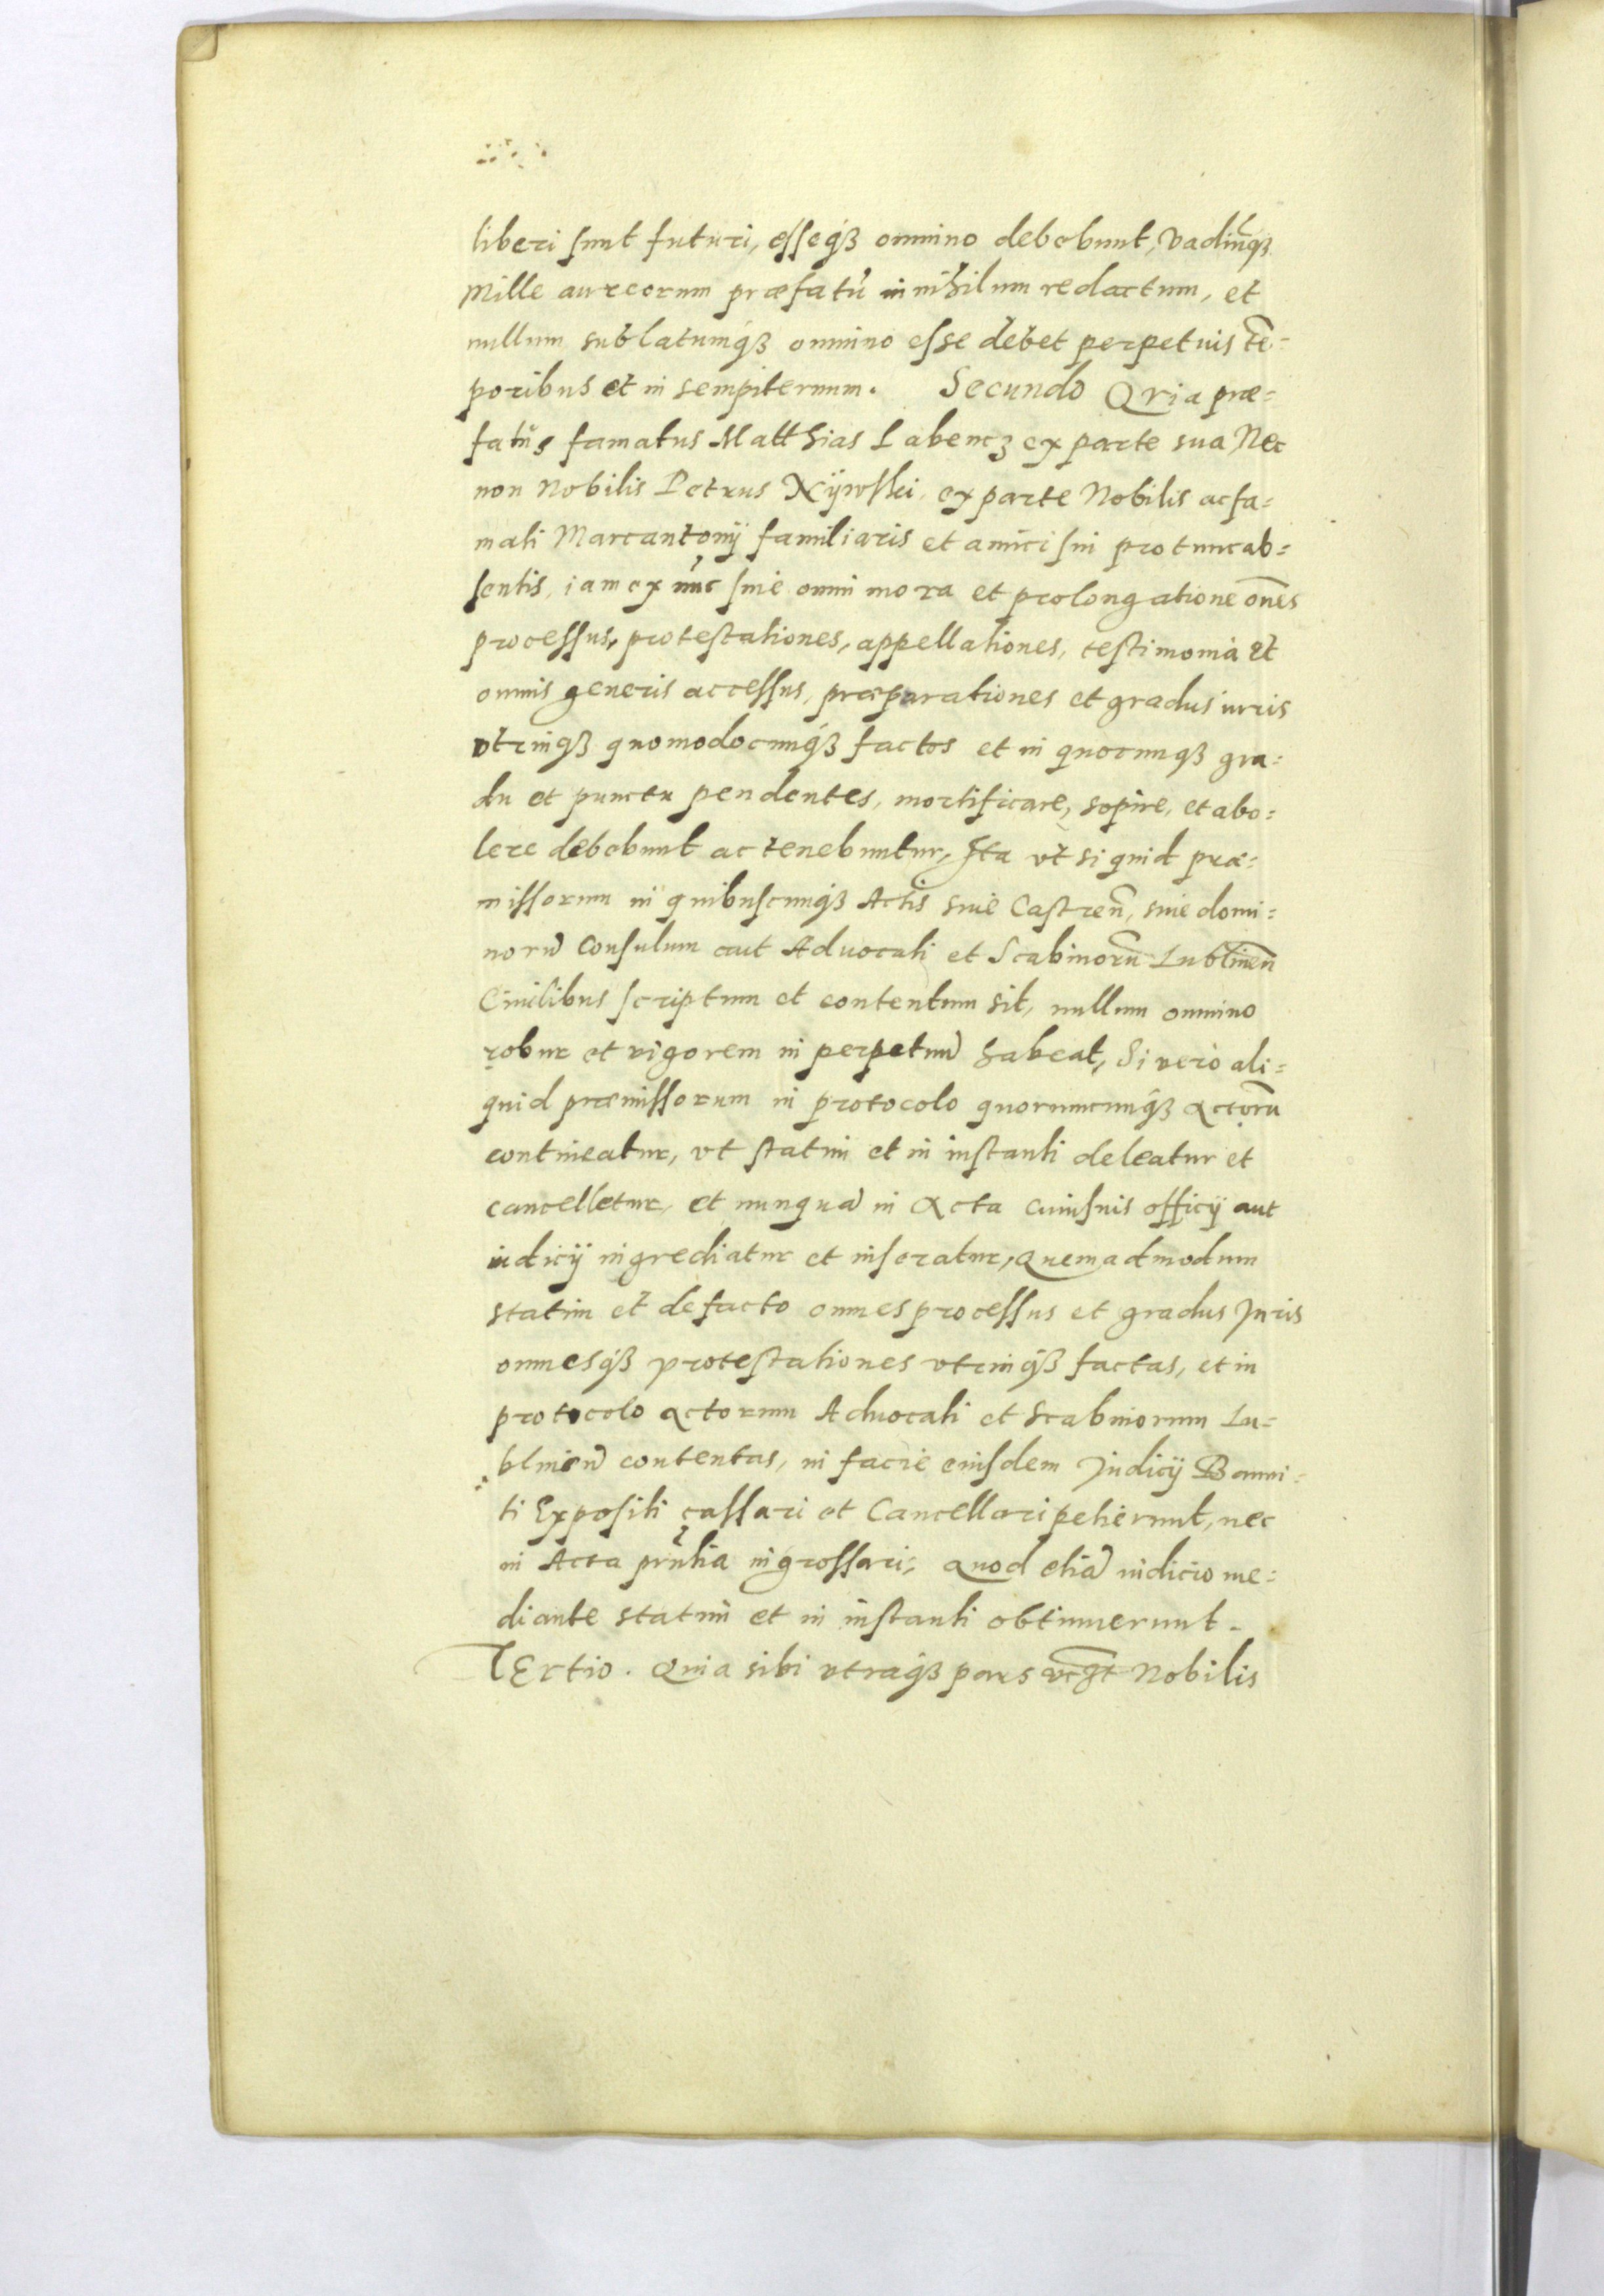 liberi sunt futuri, esseqȝ omnino debebunt, Vadiūqȝ
Mille aureorum præfatū in nihilum redactum, et
nullum sublatumqȝ omnino esse debet perpetuis tē=
poribus et in sempiternum. Secundo Quia præ=
fatus famatus Matthias Labencz ex parte sua Nec
non Nobilis Petrus ex parte Nobilis ac fa=
mati Marcantonij familiaris et amici sui pro tunc ab=
sentis, iam ex nūc sine omni mora et prolongatione oēs
processus, protestationes, appellationes, testimonia et
omnis generis accessus, præparationes et gradus iuris
vtrinqȝ quomodocunqȝ factos et in quocunqȝ gra=
du et punctu pendentes, mortificare, sopire, et abo=
lere debebunt ac tenebuntur, Ita vt si quid præ=
missorum in quibuscunqȝ Actis siue Castreñ, siue domi=
norū Consulum aut Aduocati et Scabinorū Lublineñ
Ciuilibus scriptum et contentum sit, nullum omnino
robur et vigorem in perpetuū habeat, Si vero ali=
quid præmissorum in protocolo quorumcunqȝ actorū
contineatur, vt statim et in instanti deleatur et
cancelletur, et nunquā in Acta cuiusuis officij aut
iudicij ingrediatur et inseratur, Quemadmodum
statim et de facto omnes processus et gradus Juris
omnesqȝ protestationes vtrinqȝ factas, et in
protocolo actorum Aduocati et Scabinorum Lu=
blineñ contentas, in facie eiusdem Judicij Banni=
ti Expositi cassari et Cancellari petierunt, nec
in Acta pn̄tia ingrossari, Quod etiā iudicio me=
diante statim et in instanti obtinuerunt.
Tertio. Quia sibi vtraqȝ pars vcȝt Nobilis